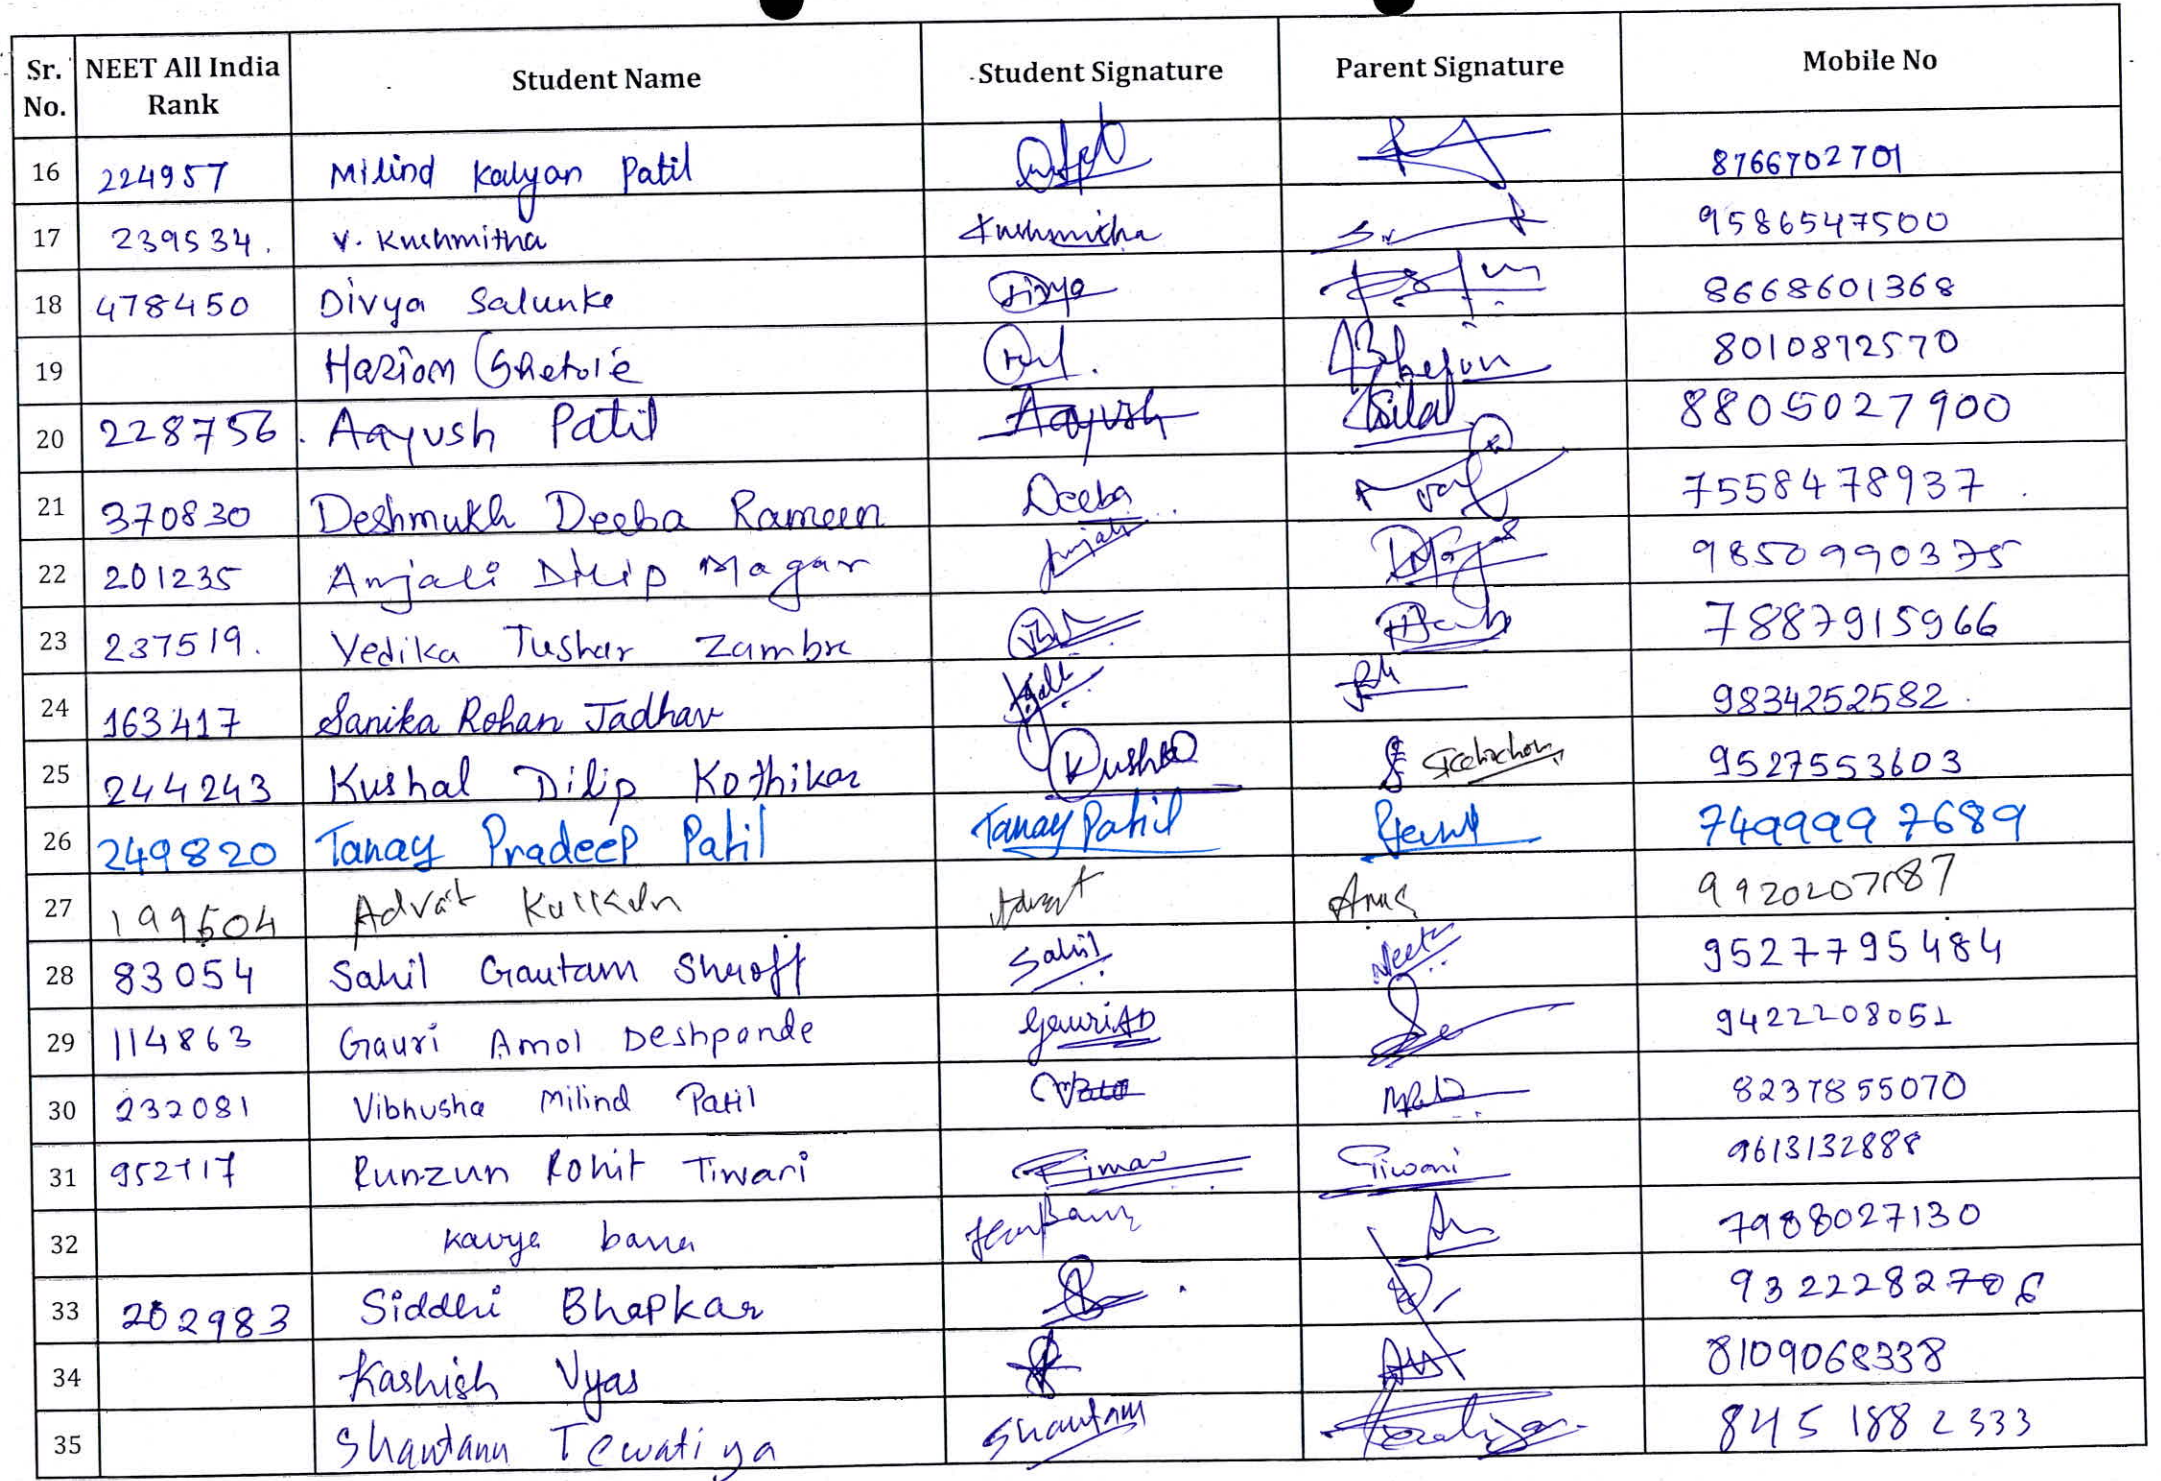 Sr. No. NEET All India Rank Student Name Student Signature Parent Signature Mobile No
16 224957 Milind Kalyan Patil 8766702701
17 239534. V. Kushmitha Kushmitha 9586547500
18 478450 Divya Salunke Divya 8668601368
19 Hariom Ghetole 8010872570
20 228756. Aayush Patil Aayush 8805027900
21 370830 Deshmukh Deeba Rameen Deeba 7558478937.
22 201235 Anjali Dilip Magar Anjali 9850990375
23 237519. Vedika Tushar Zambre 7887915966
24 163417 Sanika Rohan Jadhav 9834252582.
25 244243 Kushal Dilip Kothikar Kushal 9527553603
26 249820 Tanay Pradeep Patil Tanay Patil 7499997689
27 199504 Advait Advait
28 83054 Sahil Gautam Shroff Sahil Neeta 9527795484
29 114863 Gauri Amol Deshpande GauriAD 9422208051
30 232081 Vibhusha Milind Patil 8237855070
31 952117 Runzun Rohit Tiwari Tiwari 9613132888
32 Kavya 7988027130
33 202983 Siddhi Bhapkar
34 Kashish Vyas 8109068338
35 Shantanu Tewatiya Shantanu 8451882333